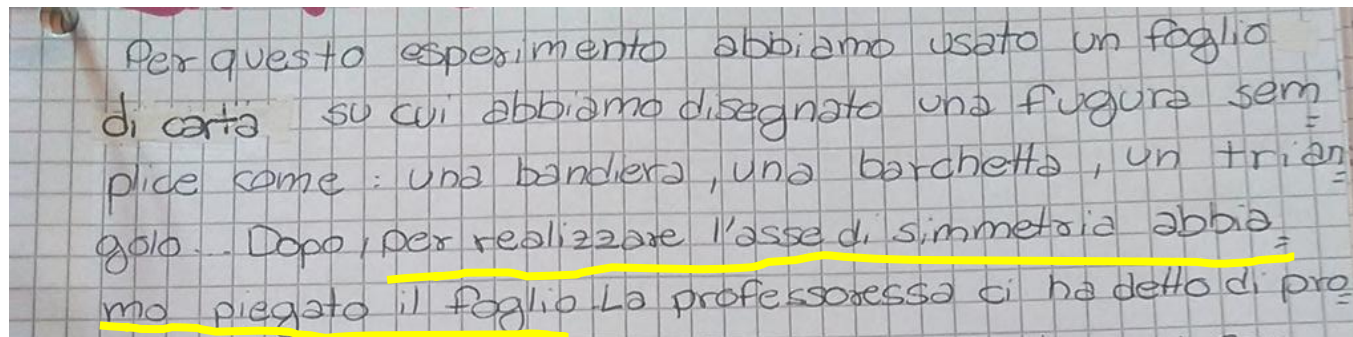 Per questo esperimento abbiamo usato un foglio
di carta su cui abbiamo disegnato una fugura sem=
plice come: una bandiera, una barchetta, un trian=
golo... Dopo, per realizzare l'asse di simmetria abbia=
mo piegato il foglio. La professoressa ci ha detto di pro=